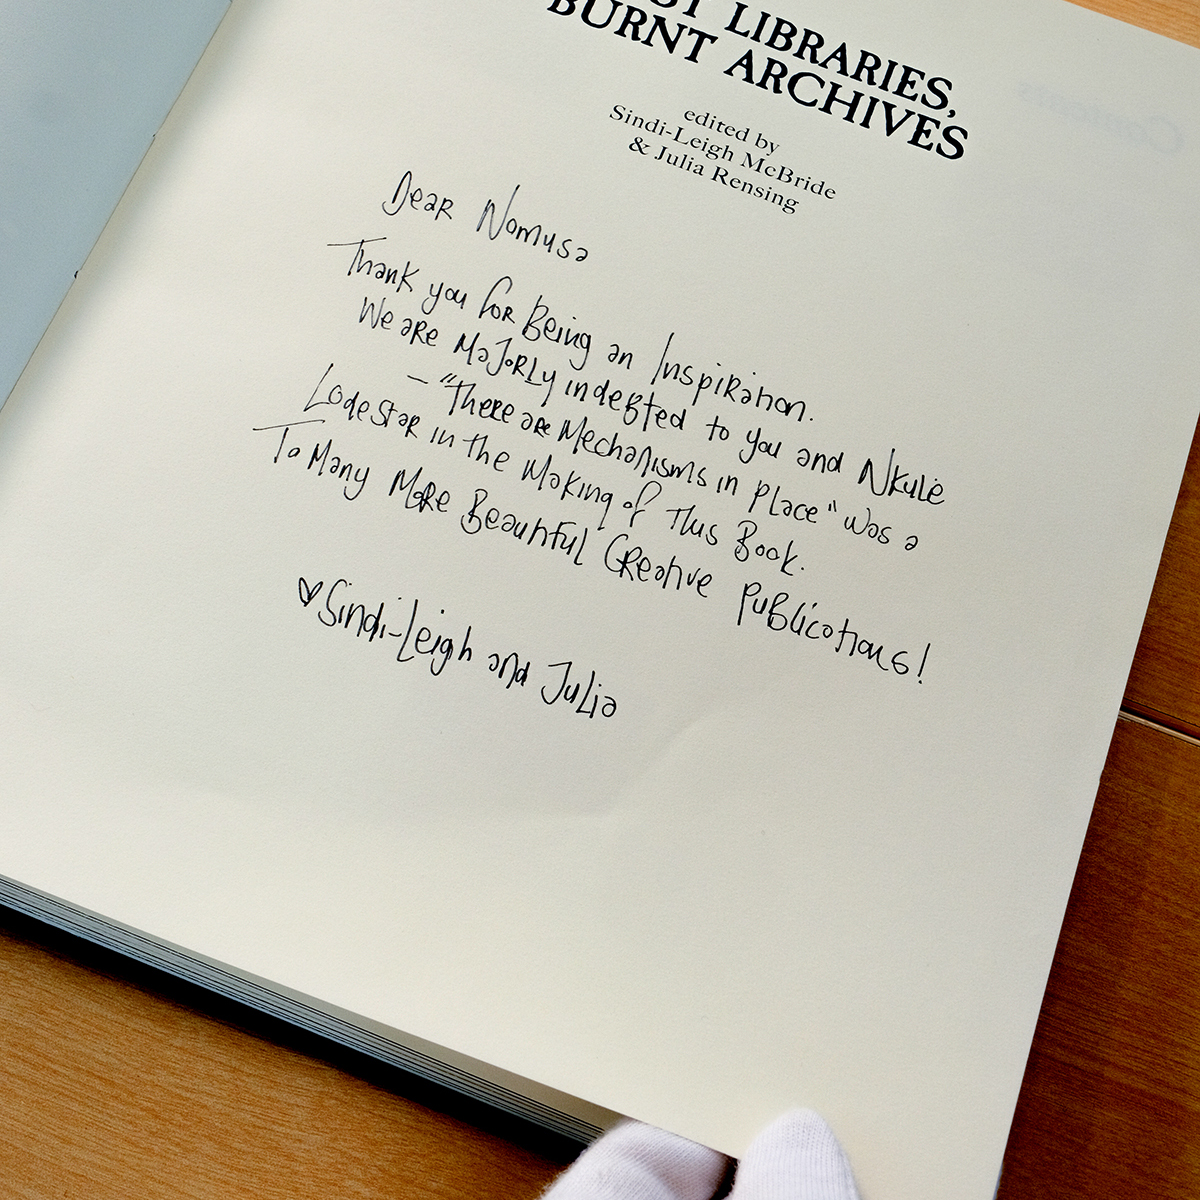 LIBRARIES,
BURNT ARCHIVES
edited by
Sindi-Leigh McBride
& Julia Rensing
Dear Nomusa
Thank you for Being an Inspiration.
We are Majorly indebted to you and Nkule
– "There are Mechanisms in place" was a
Lodestar in the Making of This Book.
To Many More Beautiful Creative Publications!
♥ Sindi-Leigh and Julia